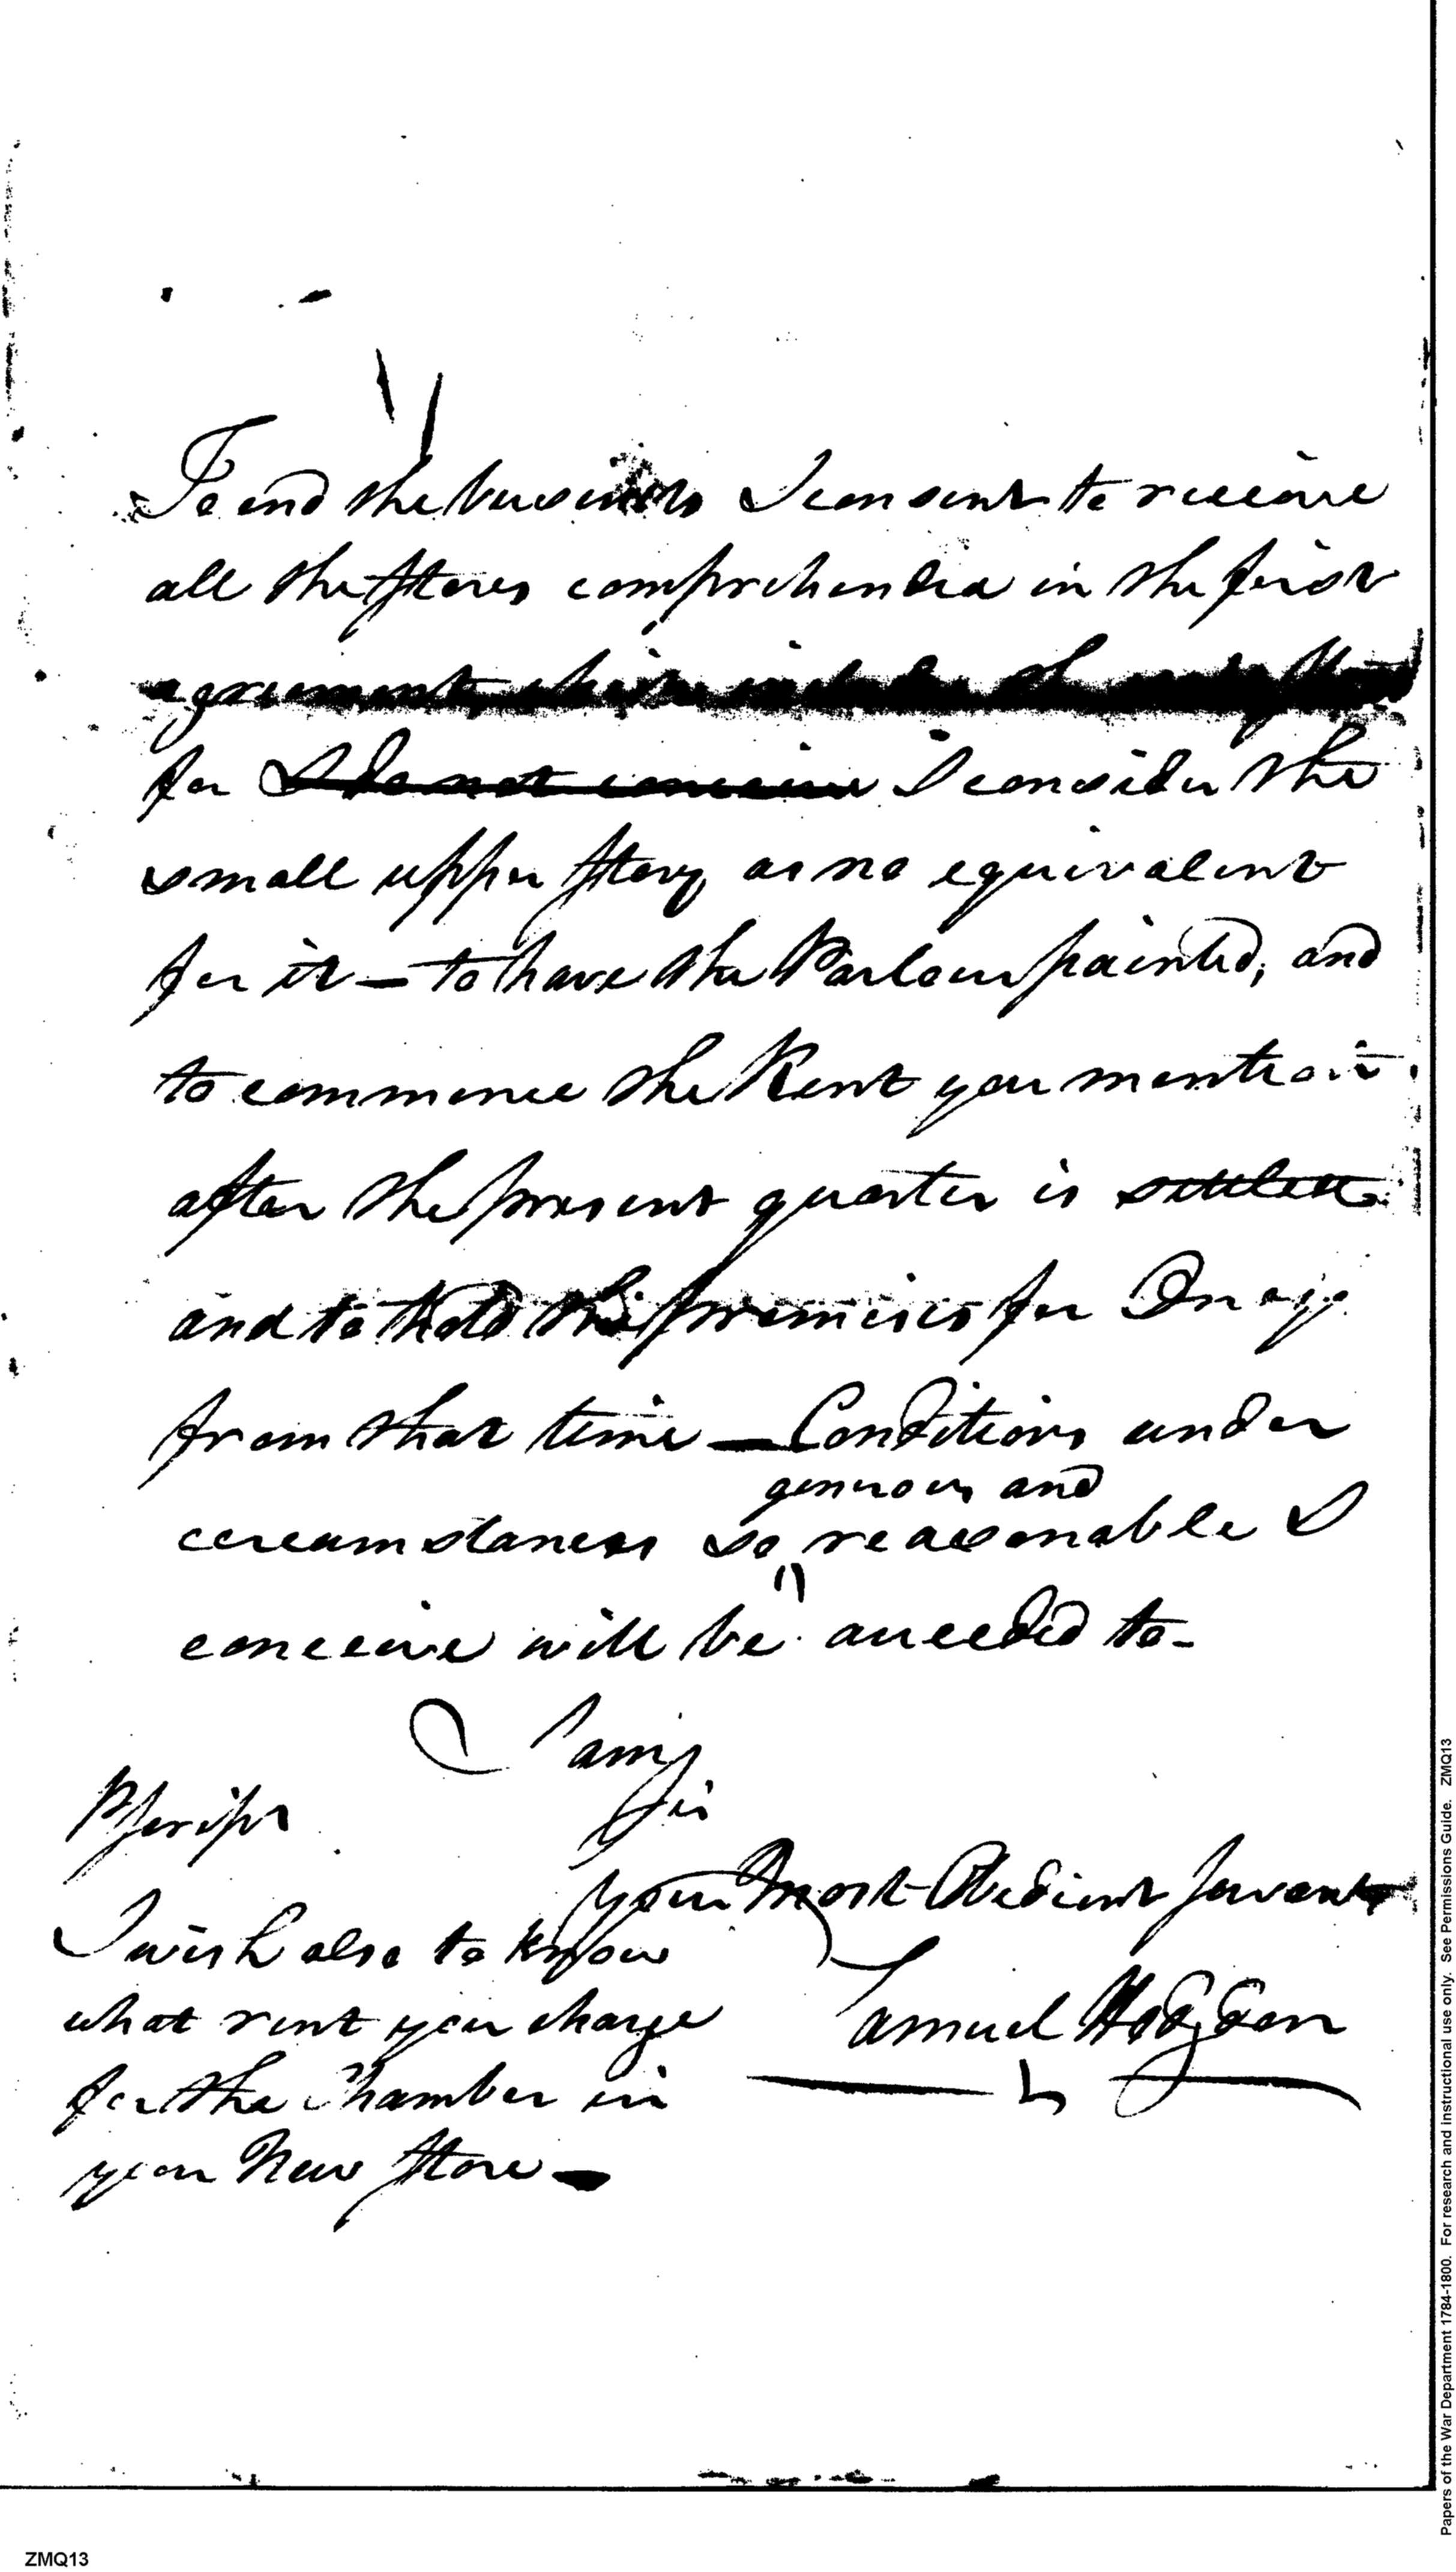 To end the business I consent to receive
all the Stores comprehended in the first
agreement, which includes the
for I do not conceive I consider the
small upper Story as no equivalent
for it — to have the Parlour painted, and
to commence the Rent you mention
after the present quarter is settled
and to hold the premises for One
from that time — Conditions under
generous and
circumstances so reasonable I
conceive will be acceeded to -
I am
Sir
your most Obedient Servant
Samuel Hodgdon
Pscript
I wish also to know
what rent you charge
for the Chamber in
your New Store —
Papers of the War Department 1784-1800. For research and instructional use only. See Permissions Guide. ZMQ13
ZMQ13